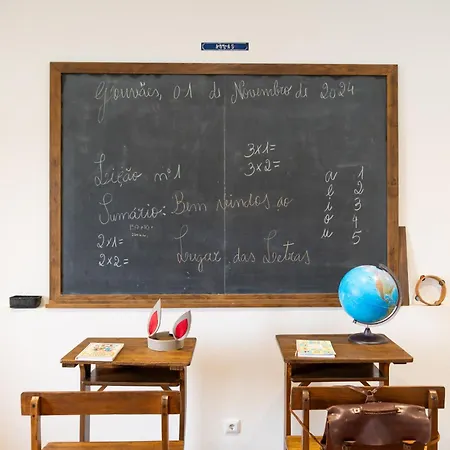 Gouvães, 01 de Novembro de 2024
3x1=
3x2=
Lição nº1
Sumário: Bem vindos ao
Lugar das Letras
2x1=
2x2=
a 1
e 2
i 3
o 4
u 5